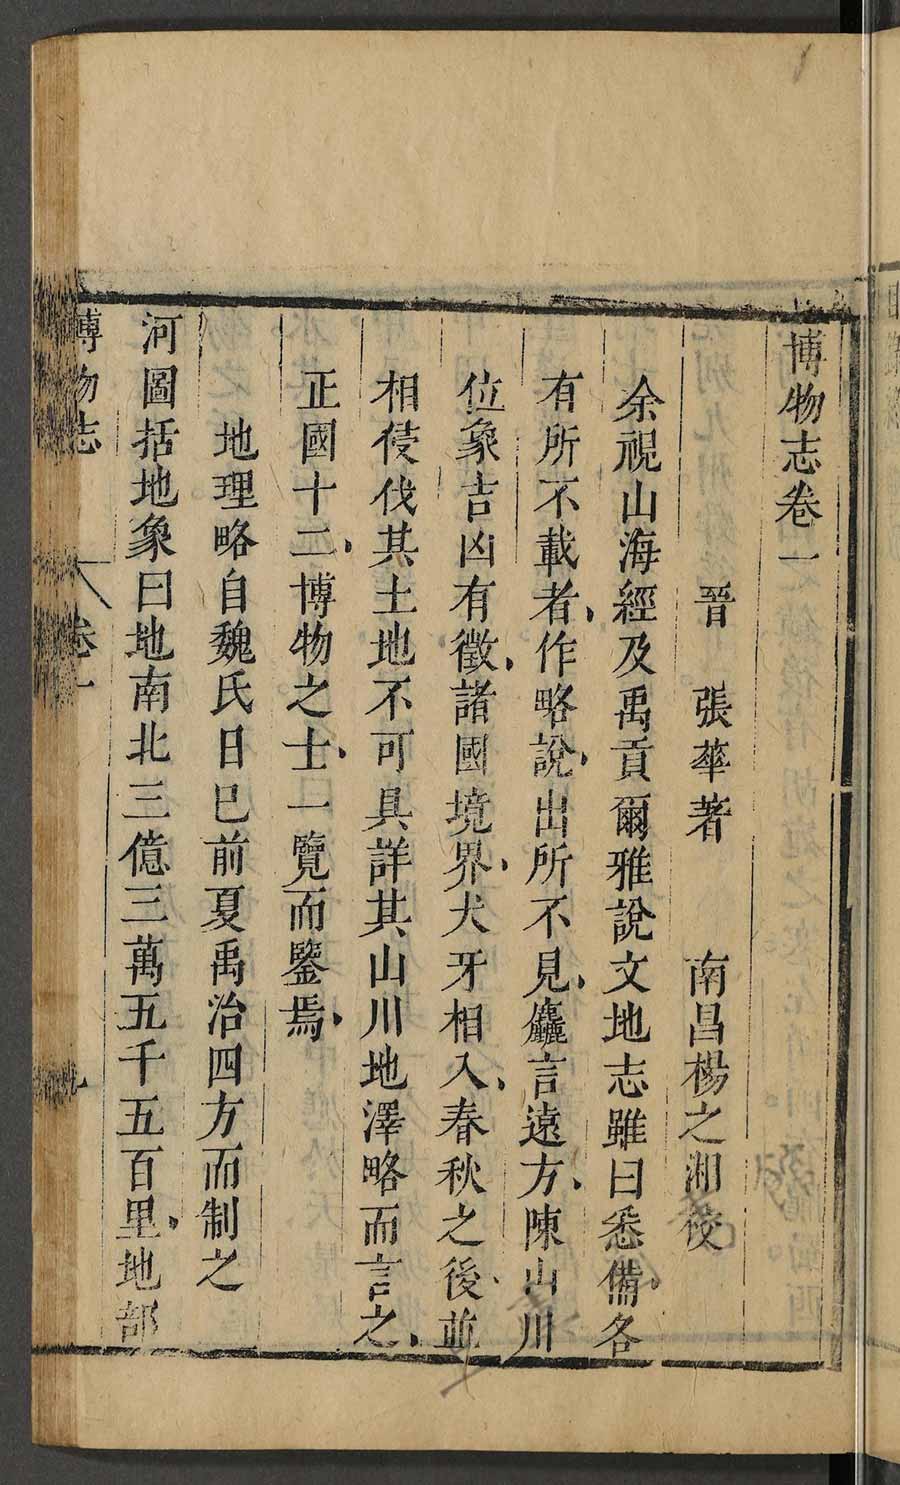 博物志卷一
晉 張華著 南昌楊之湘校
余視山海經及禹貢爾雅說文地志雖曰悉備各
有所不載者、作略說、出所不見、麤言遠方、陳山川
位象吉凶有徵、諸國境界、犬牙相入、春秋之後、並
相侵伐其土地不可具詳其山川地澤略而言之、
正國十二、博物之士、一覽而鑒焉、
地理略自魏氏日已前夏禹治四方而制之
河圖括地象曰地南北三億三萬五千五百里、地部
博物志 卷一 九